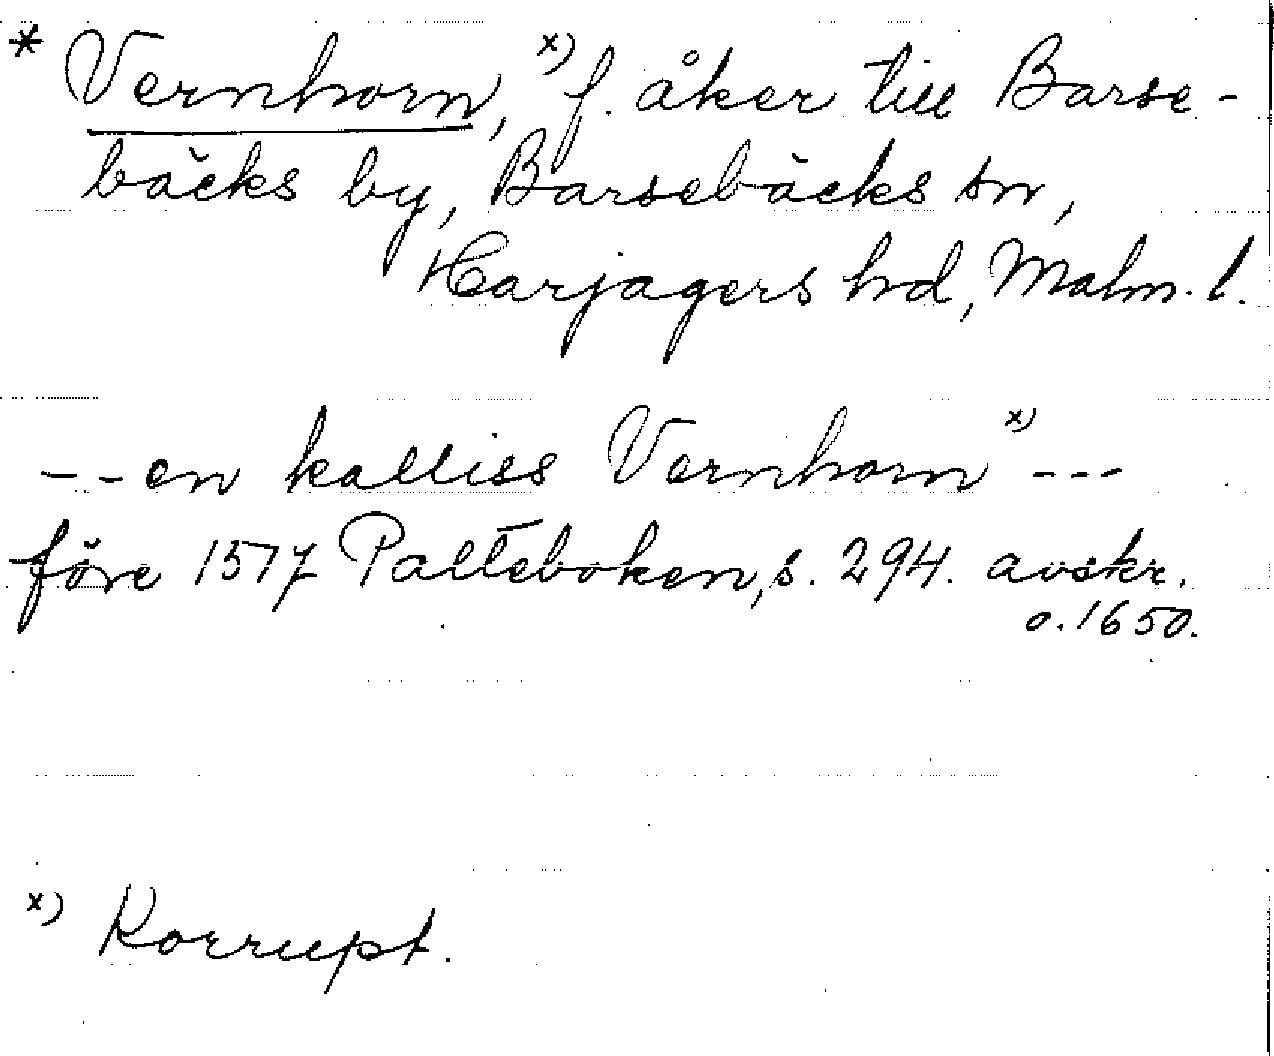 * Vernhorn, x) f. åker till Barse-
bäcks by, Barsebäcks sn,
Harjagers hd, Malm. l.
- - en kalliss Vernhorn x) ---
före 1517 Palteboken, s. 294. avskr.
o. 1650.
x) Korrupt.